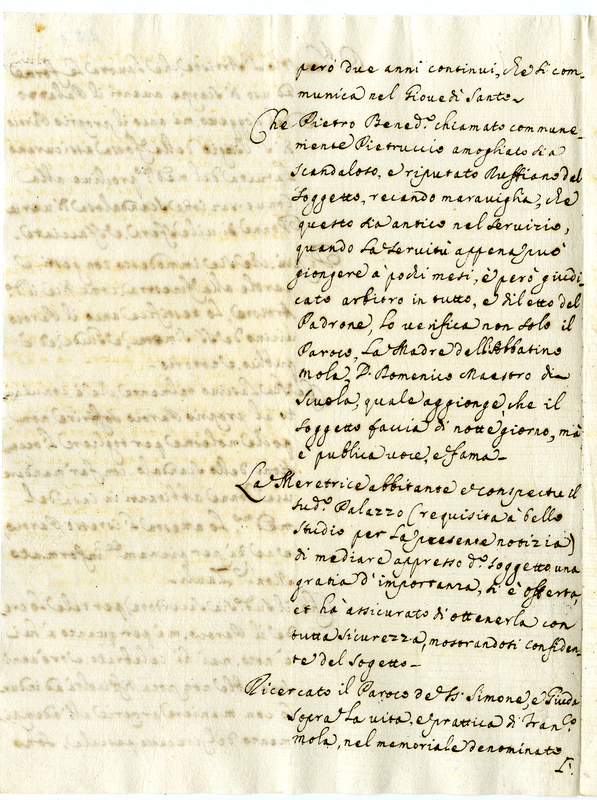 però due anni continui, che si com-
munica nel Giovedi Santo.
Che Pietro Bened.º chiamato commune-
mente Pietruccio amogliato sia
scandaloso, e riputato Ruffiano del
soggetto, recando maraviglia, che
questo sia antico nel servizio,
quando la servitù appena può
giongere à pochi mesi, è però giudi-
cato arbitro in tutto, e diletto del
Padrone, lo verifica non solo il
Paroco, la Madre dell'Abbatino
Mola, D. Domenico Maestro di
Scuola, quale aggionge, che il
soggetto faccia di notte giorno, mà
è publica voce, e fama.
La Meretrice abbitante e conspectu il
sud.º Palazzo (requisita à bello
studio per la presente notizia)
di mediare appresso d.º soggetto una
gratia d'importanza, si è offerta,
et hà assicurato di ottenerla con
tutta sicurezza, mostrandosi confiden-
te del sogetto.
Ricercato il Paroco de SS. Simone, e Giuda
sopra la vita, e prattica di Fran.co
Mola, nel memoriale denominato